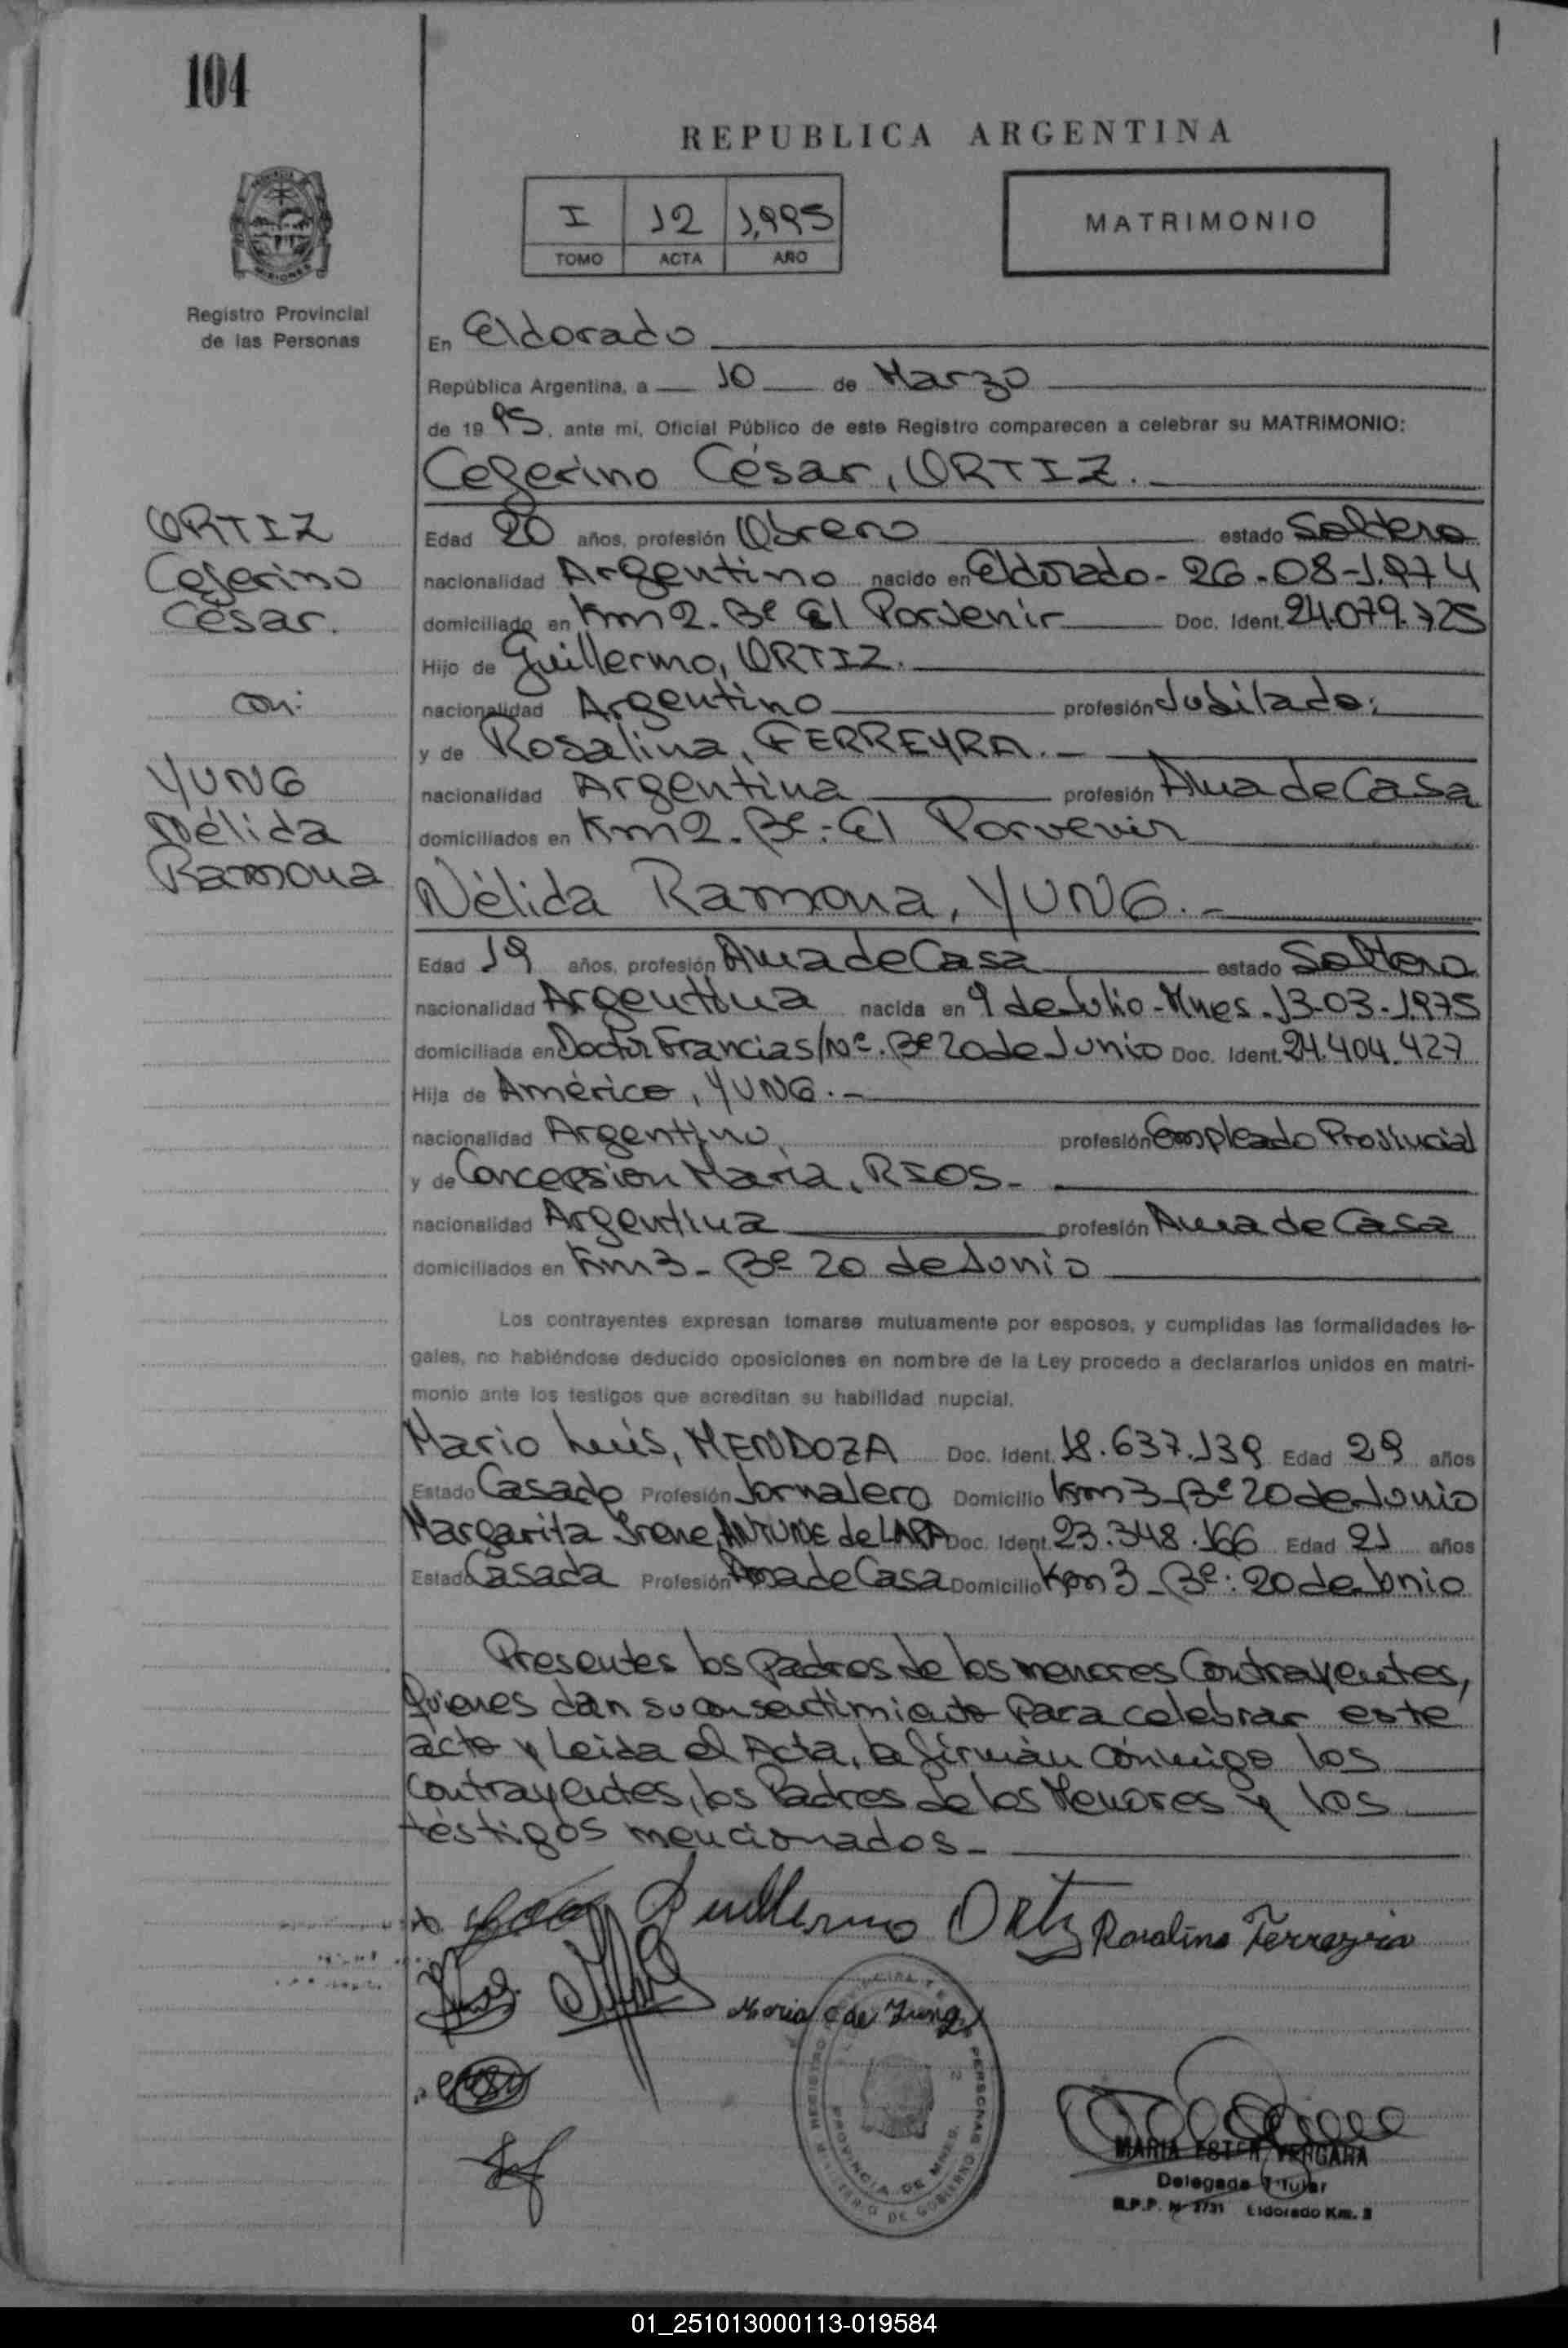 104
REPUBLICA ARGENTINA
I 12 1.995
TOMO ACTA AÑO
MATRIMONIO
Registro Provincial
de las Personas
En Eldorado
República Argentina, a 10 de Marzo
de 19 95, ante mí, Oficial Público de este Registro comparecen a celebrar su MATRIMONIO:
Ceferino César, ORTIZ.
ORTIZ
Ceferino
César.
con:
YUNG
Nélida
Ramona
Edad 20 años, profesión Obrero estado Soltero
nacionalidad Argentino nacido en Eldorado - 26-08-1.974
domiciliado en Km 2. Bº El Porvenir Doc. Ident. 24.079.725
Hijo de Guillermo, ORTIZ.
nacionalidad Argentino profesión Jubilado.
y de Rosalina, FERREYRA.-
nacionalidad Argentina profesión Ama de Casa
domiciliados en Km 2. Bº: El Porvenir
Nélida Ramona, YUNG.-
Edad 19 años, profesión Ama de Casa estado Soltera
nacionalidad Argentina nacida en 9 de Julio - Mnes. 13-03-1.975
domiciliada en Doctor Francia s/Nº. Bº 20 de Junio Doc. Ident. 24.404.427
Hija de Américo, YUNG.-
nacionalidad Argentino profesión Empleado Provincial
y de Concepsion María, RIOS-
nacionalidad Argentina profesión Ama de Casa
domiciliados en Km 3 - Bº 20 de Junio
Los contrayentes expresan tomarse mutuamente por esposos, y cumplidas las formalidades le-
gales, no habiéndose deducido oposiciones en nombre de la Ley procedo a declararlos unidos en matri-
monio ante los testigos que acreditan su habilidad nupcial.
Mario Luis, MENDOZA Doc. Ident. 18.637.139 Edad 29 años
Estado Casado Profesión Jornalero Domicilio Km 3 - Bº 20 de Junio
Margarita Irene, ANTUNE de LARA Doc. Ident. 23.348.166 Edad 21 años
Estado Casada Profesión Ama de Casa Domicilio Km 3 - Bº: 20 de Junio
Presentes los Padres de los menores Contrayentes,
Quienes dan su consentimiento para celebrar este
acto y Leida el Acta, la firmán cónmigo los
Contrayentes, los Padres de los Menores y los
téstigos mencionados.-
Guillermo Ortiz Rosalina Ferreyra
Maria C de Yung
REGISTRO PERSONAS
PROVINCIA DE MNES.
MINISTERIO DE GOBIERNO
MARIA ESTER VERGARA
Delegada Titular
R.P.P. Nº 3731 Eldorado Km. 3
01_251013000113-019584